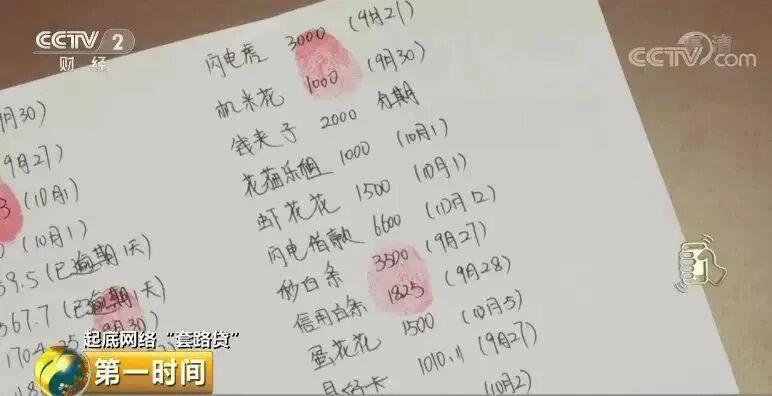 CCTV 2
财经
CCTV.com
闪电虎 3000 (9月27)
机米花 1000 (9月30)
钱夹子 2000 短期
花猫乐租 1000 (10月1)
虾花花 1500 (10月1)
闪电借款 6600 (10月12)
秒白条 3500 (9月27)
信用白条 1825 (9月28)
蛋花花 1500 (10月5)
1010.11 (9月27)
(10月2)
9月30)
(9月27)
3 (10月1
(10月1)
59.5 (已逾期1天)
567.7 (已逾期1天)
9月30)
起底网络“套路贷”
第一时间